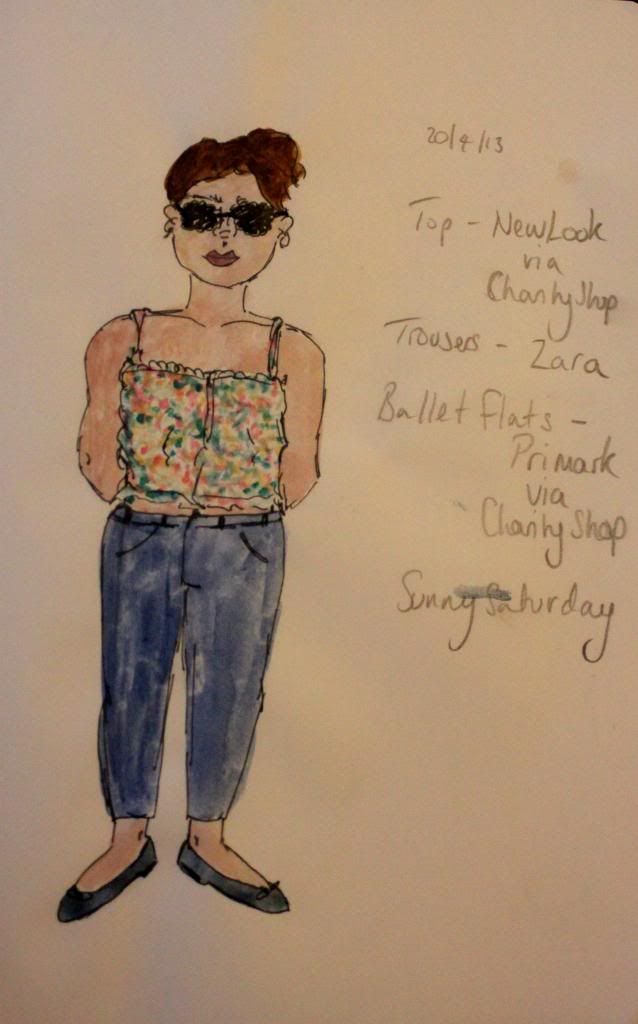 20/4/13
Top - New Look
via
Charity Shop
Trousers - Zara
Ballet Flats -
Primark
via
Charity Shop
Sunny Saturday